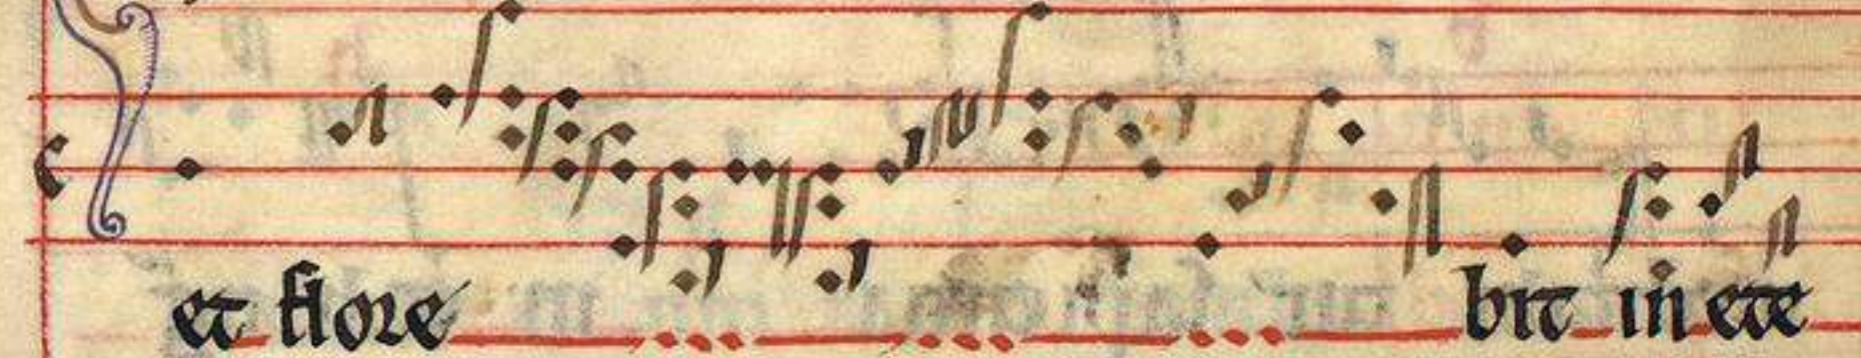 et flore bit in ete